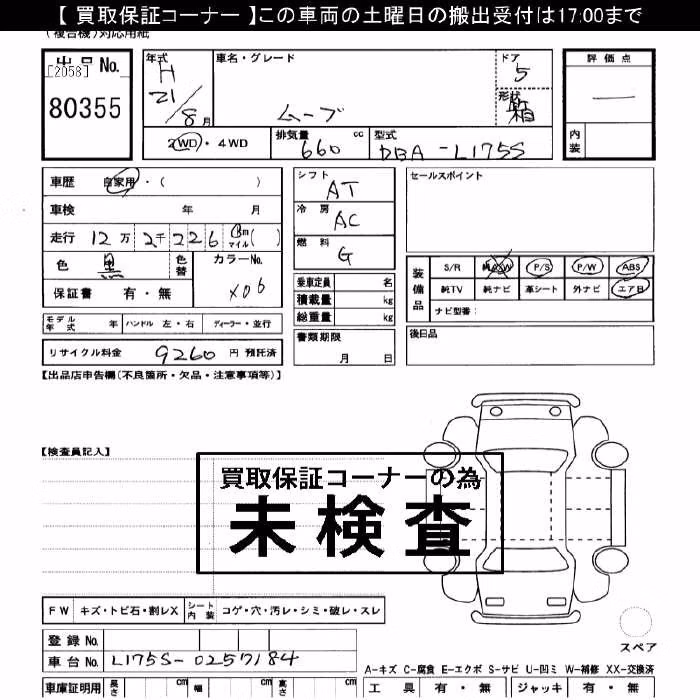 【 買取保証コーナー 】この車両の土曜日の搬出受付は17:00まで
(複合機)対応用紙
出品 No.
[2058]
80355
年式 車名・グレード ドア
H 5
21/8月 ムーブ 形状 箱
2WD・4WD 排気量 660 cc 型式 DBA-L175S
評価点
—
内装
車歴 自家用・( )
車検 年 月
走行 12万 2千226 Km マイル ( )
色 黒 色替 カラーNo.
X06
保証書 有・無
モデル年式 年 ハンドル 左・右 ディーラー・並行
リサイクル料金 9260 円 預託済
シフト AT
冷房 AC
燃料 G
乗車定員 名
積載量 kg
総重量 kg
書類期限
月 日
セールスポイント
装備品 S/R 純AW P/S P/W ABS
純TV 純ナビ 革シート 外ナビ エアB
ナビ型番:
後日品
【出品店申告欄(不良箇所・欠品・注意事項等)】
【検査員記入】
買取保証コーナーの為
未検査
FW キズ・トビ石・割レX シート内装 コゲ・穴・汚レ・シミ・破レ・スレ
スペア
登録 No.
車台 No. L175S-0257184
A-キズ C-腐食 E-エクボ S-サビ U-凹ミ W-補修 XX-交換済
車庫証明用 長さ cm 幅 cm 高さ cm
工具 有・無 ジャッキ 有・無